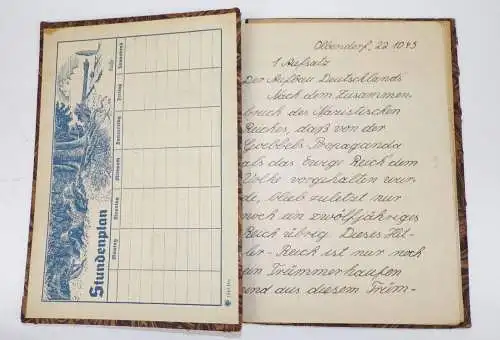 Stundenplan
Montag
Dienstag
Mittwoch
Donnerstag
Freitag
Sonnabend
Olbendorf, 22. 10. 45
1. Aufsatz
Der Aufbau Deutschlands
Nach dem Zusammen-
bruch des Nazistischen
Reiches, daß von der
Goebbels Propaganda
als das Ewige Reich dem
Volke vorgehalten wur-
de, blieb zuletzt nur
noch ein zwölfjähriges
Reich übrig. Dieses Hit-
ler-Reich ist nur noch
ein Trümmerhaufen
und aus diesem Trüm-